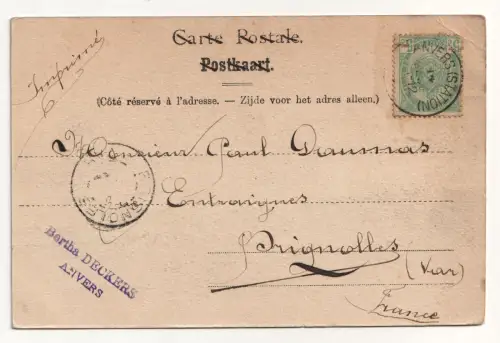 Carte Postale.
Postkaart.
Imprimé
(Côté réservé à l'adresse. — Zijde voor het adres alleen.)
ANVERS (STATION)
Monsieur Paul Daumas
Entraigues
Brignolles
(Var)
France
Bertha DECKERS
ANVERS